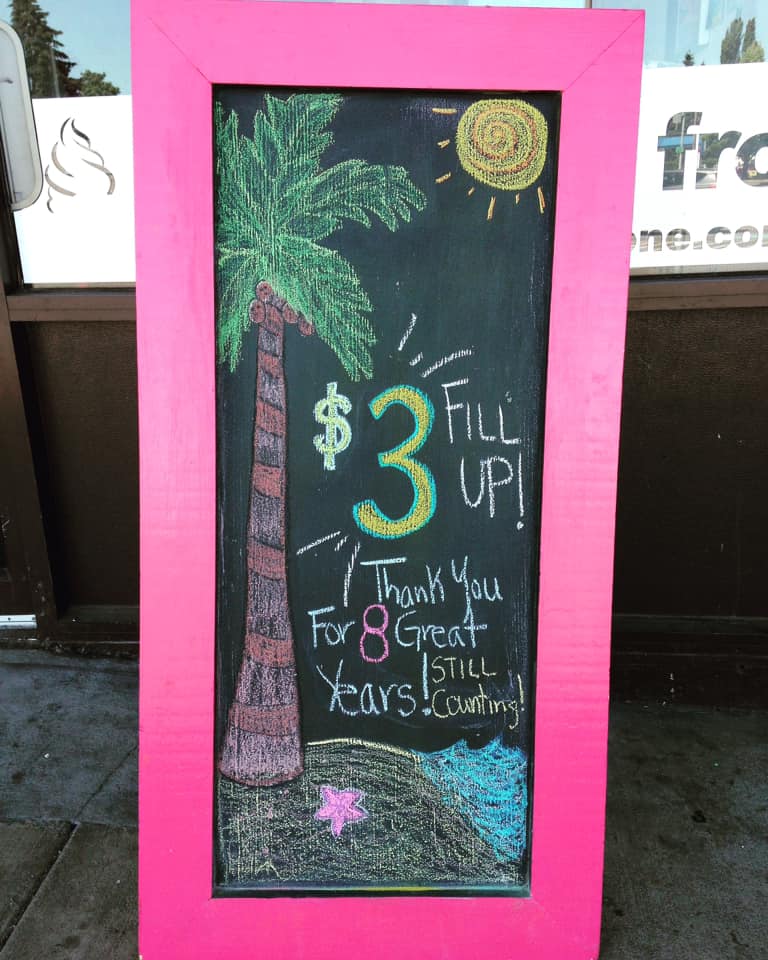 fro
one.co
$3 FILL
UP!
Thank You
For 8 Great
Years! STILL
Counting!